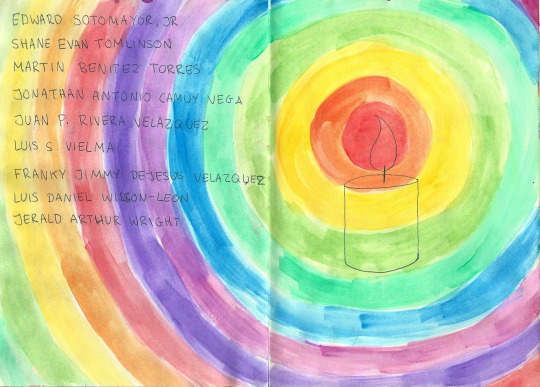 EDWARD SOTOMAYOR, JR.
SHANE EVAN TOMLINSON
MARTIN BENITEZ TORRES
JONATHAN ANTONIO CAMUY VEGA
JUAN P. RIVERA VELAZQUEZ
LUIS S VIELMA
FRANKY JIMMY DEJESUS VELAZQUEZ
LUIS DANIEL WILSON-LEON
JERALD ARTHUR WRIGHT